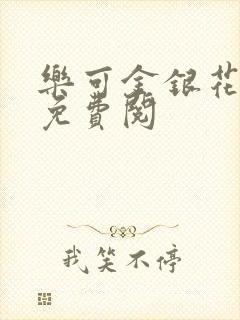 樂可金銀花
免費閱
我笑不停